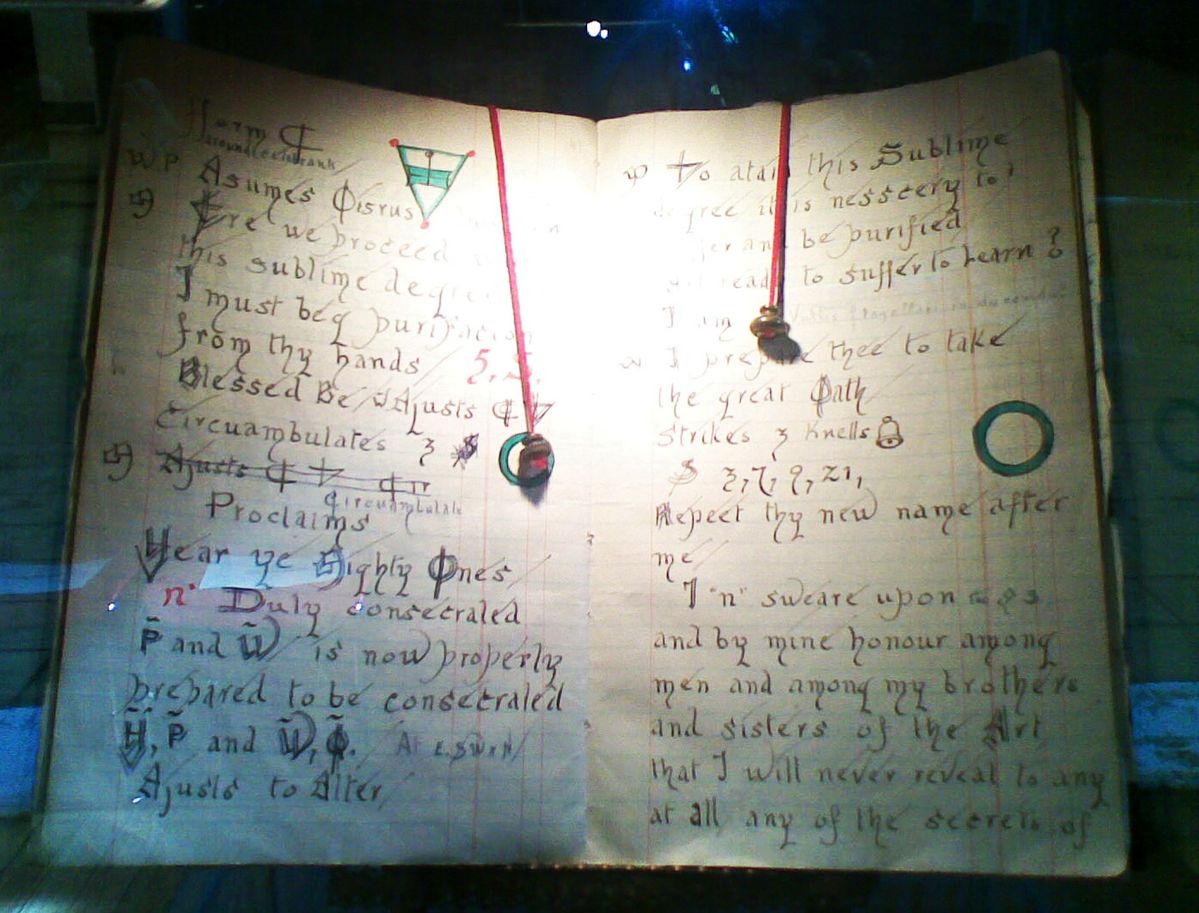 Form C
WP Asumes Osirus
M Ere we proceed
this sublime degree
I must beg purifacion
from thy hands 5, 5,
Blessed Be W Ajusts
Circuambulates 3
M Ajusts
Circuambulate
Proclaims
Hear ye Mighty Ones
"n" Duly consecraled
P and W is now properly
prepared to be consecraled
H, P and W, O. At E. S W & N
Ajusts to Alter
W To atain this Sublime
degree it is nesscery to
and be purified
to suffer to Learn?
I am
W I prepare thee to take
the great Oath
Strikes 3 Knells
3, 7, 9, 21,
Repeet thy new name after
me
I "n" sweare upon
and by mine honour among
men and among my brothers
and sisters of the Art
that I will never reveal to any
at all any of the secrets of